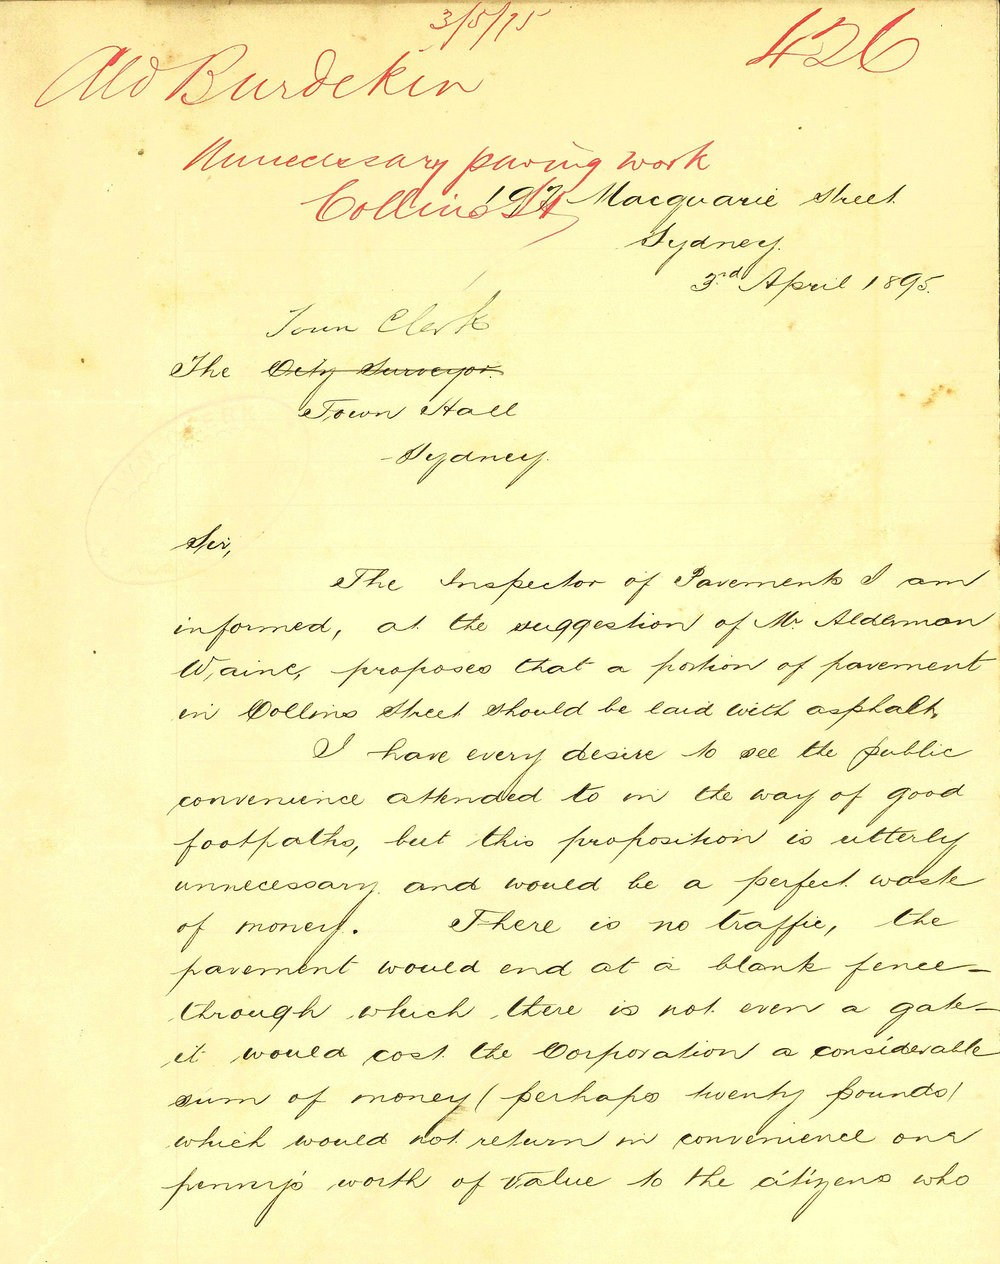 3/5/95
426
Ald Burdekin
Unnecessary paving work
Collins St
197 Macquarie Street
Sydney.
3rd April 1895.
Town Clerk
The City Surveyor.
Town Hall
Sydney.
Sir,
The Inspector of Pavements I am
informed, at the suggestion of Mr. Alderman
Waine, proposes that a portion of pavement
in Collins Street should be laid with asphalt.
I have every desire to see the public
convenience attended to in the way of good
footpaths, but this proposition is utterly
unnecessary and would be a perfect waste
of money. There is no traffic, the
pavement would end at a blank fence—
through which there is not even a gate—
it would cost the Corporation a considerable
sum of money (perhaps twenty pounds)
which would not return in convenience one
penny's worth of value to the citizens who